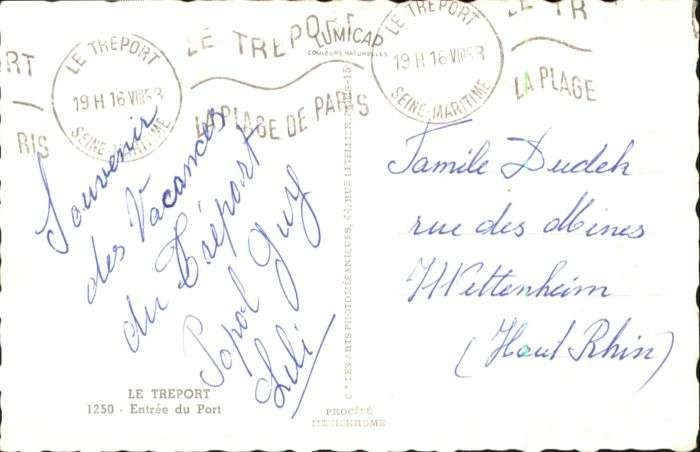 LE TREPORT
19 H 16 VIII 58
SEINE-MARITIME
LE TREPORT
LA PLAGE DE PARIS
LE TREPORT
19 H 16 VIII 58
SEINE-MARITIME
LE TR
LA PLAGE
ORT
RIS
LUMICAP
COULEURS NATURELLES
Souvenir
des Vacances
du Tréport
Popol Guy
Lili
LE TREPORT
1250 - Entrée du Port
LES ARTS PHOTOMÉCANIQUES, 44, RUE LETELLIER, PARIS-15
PROCÉDÉ
Famile Dudek
rue des Mines
Wittenheim
(Haut Rhin)